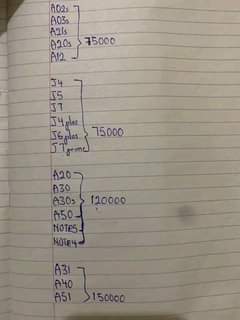 A02s
A03s
A21s
A20s 75000
A12
J4
J5
J7
J4 plus 75000
J6 plus
J7 prime
A20
A30
A30s 120000
A50
NOTE5
NOTE4
A31
A40
A51 150000